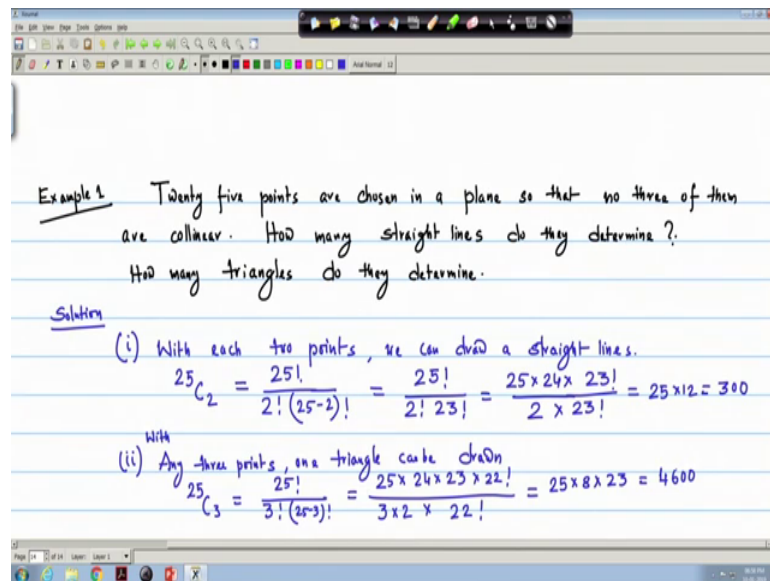 Journal
File Edit View Page Tools Options Help
Arial Normal 12
Example 1 Twenty five points are chosen in a plane so that no three of them
are collinear. How many straight lines do they determine?
How many triangles do they determine.
Solution
(i) With each two points, we can draw a straight lines.
²⁵C₂ = 25! / 2! (25-2)! = 25! / 2! 23! = 25 × 24 × 23! / 2 × 23! = 25 × 12 = 300
With
(ii) Any three points, one triangle can be drawn
²⁵C₃ = 25! / 3! (25-3)! = 25 × 24 × 23 × 22! / 3 × 2 × 22! = 25 × 8 × 23 = 4600
Page 14 of 14 Layer: Layer 1